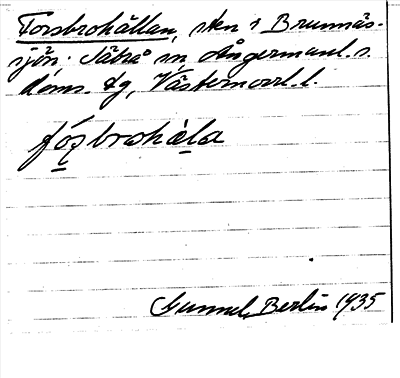 Forsbrohällan, sten i Brunnäs-
sjön; Säbrå sn, Ångermanl. s.
doms. tg, Västernorrl. l.
fósbrohäla
Gunnel Berlin 1935